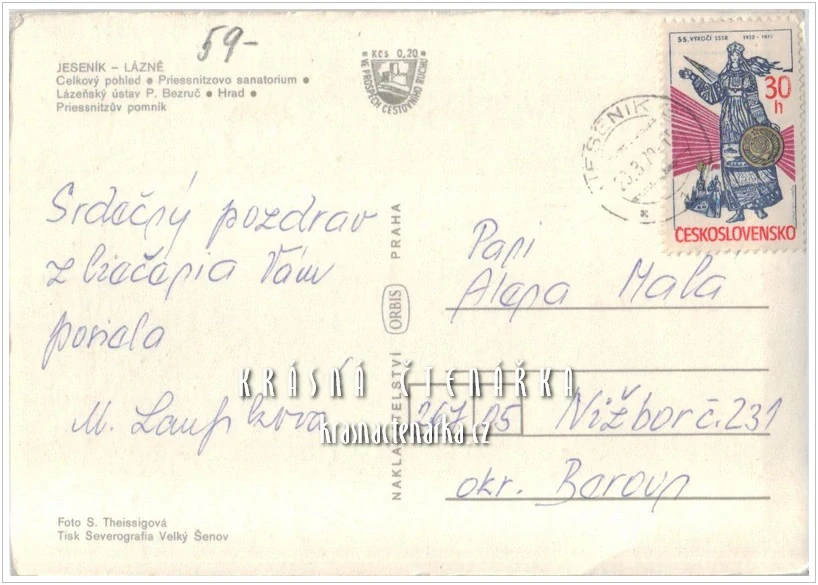 59-
JESENÍK – LÁZNĚ
Celkový pohled • Priessnitzovo sanatorium •
Lázeňský ústav P. Bezruč • Hrad •
Priessnitzův pomník
• Kčs 0,20 •
VE PROSPĚCH CESTOVNÍHO RUCHU
55. VÝROČÍ SSSR 1922 - 1977
30
h
ČESKOSLOVENSKO
JESENÍK
Srdečný pozdrav
z liečenia Vám
posiela
M.
Paní
Alena Malá
267 05 Nižbor č. 231
okr. Beroun
NAKLADATELSTVÍ ORBIS PRAHA
KRÁSNÁ ČTENÁŘKA
krasnactenarka.cz
Foto S. Theissigová
Tisk Severografia Velký Šenov